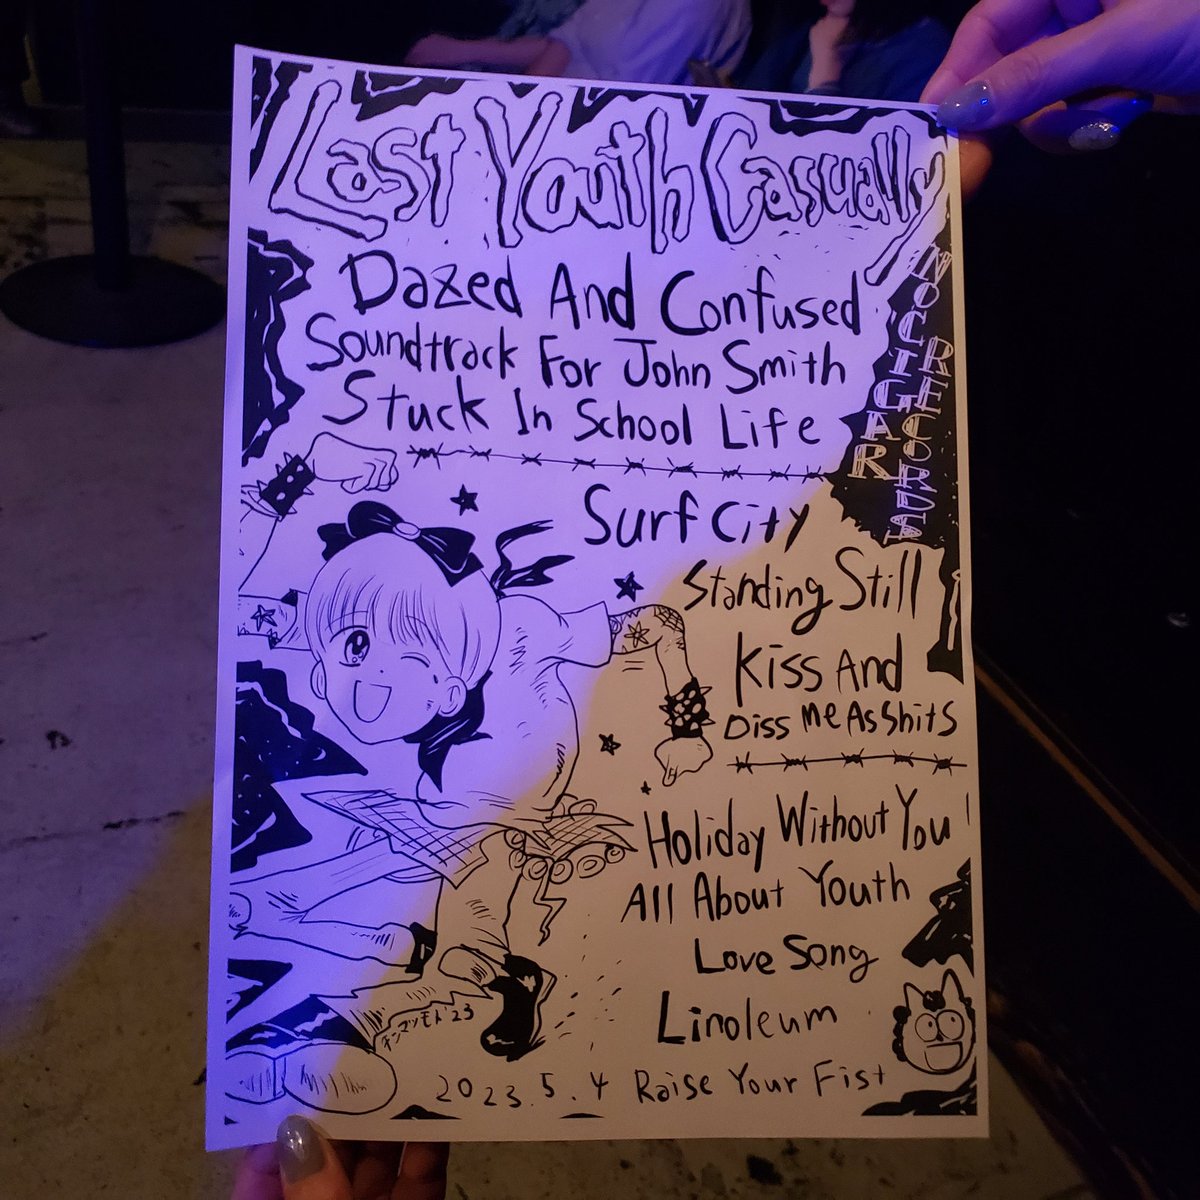 Last Youth Casually
NO CIGAR
RECORDS
Dazed And Confused
Soundtrack For John Smith
Stuck In School Life
Surf City
Standing Still
Kiss And
Diss Me As Shits
Holiday Without You
All About Youth
Love Song
Linoleum
キンマツモト'23
2023.5.4 Raise Your Fist